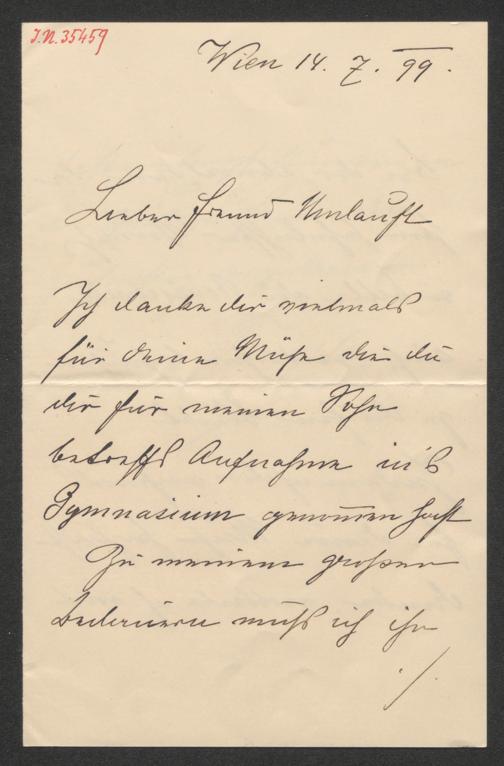 I.N. 35459
Wien 14. 7. 99.
Lieber Freund Umlauft
Ich danke dir vielmals
für deine Mühe die du
dir für meinen Sohn
betreffs Aufnahme in's
Gymnasium genom̅en hast
Zu meinem großen
Bedauern muß ich ihn
./.